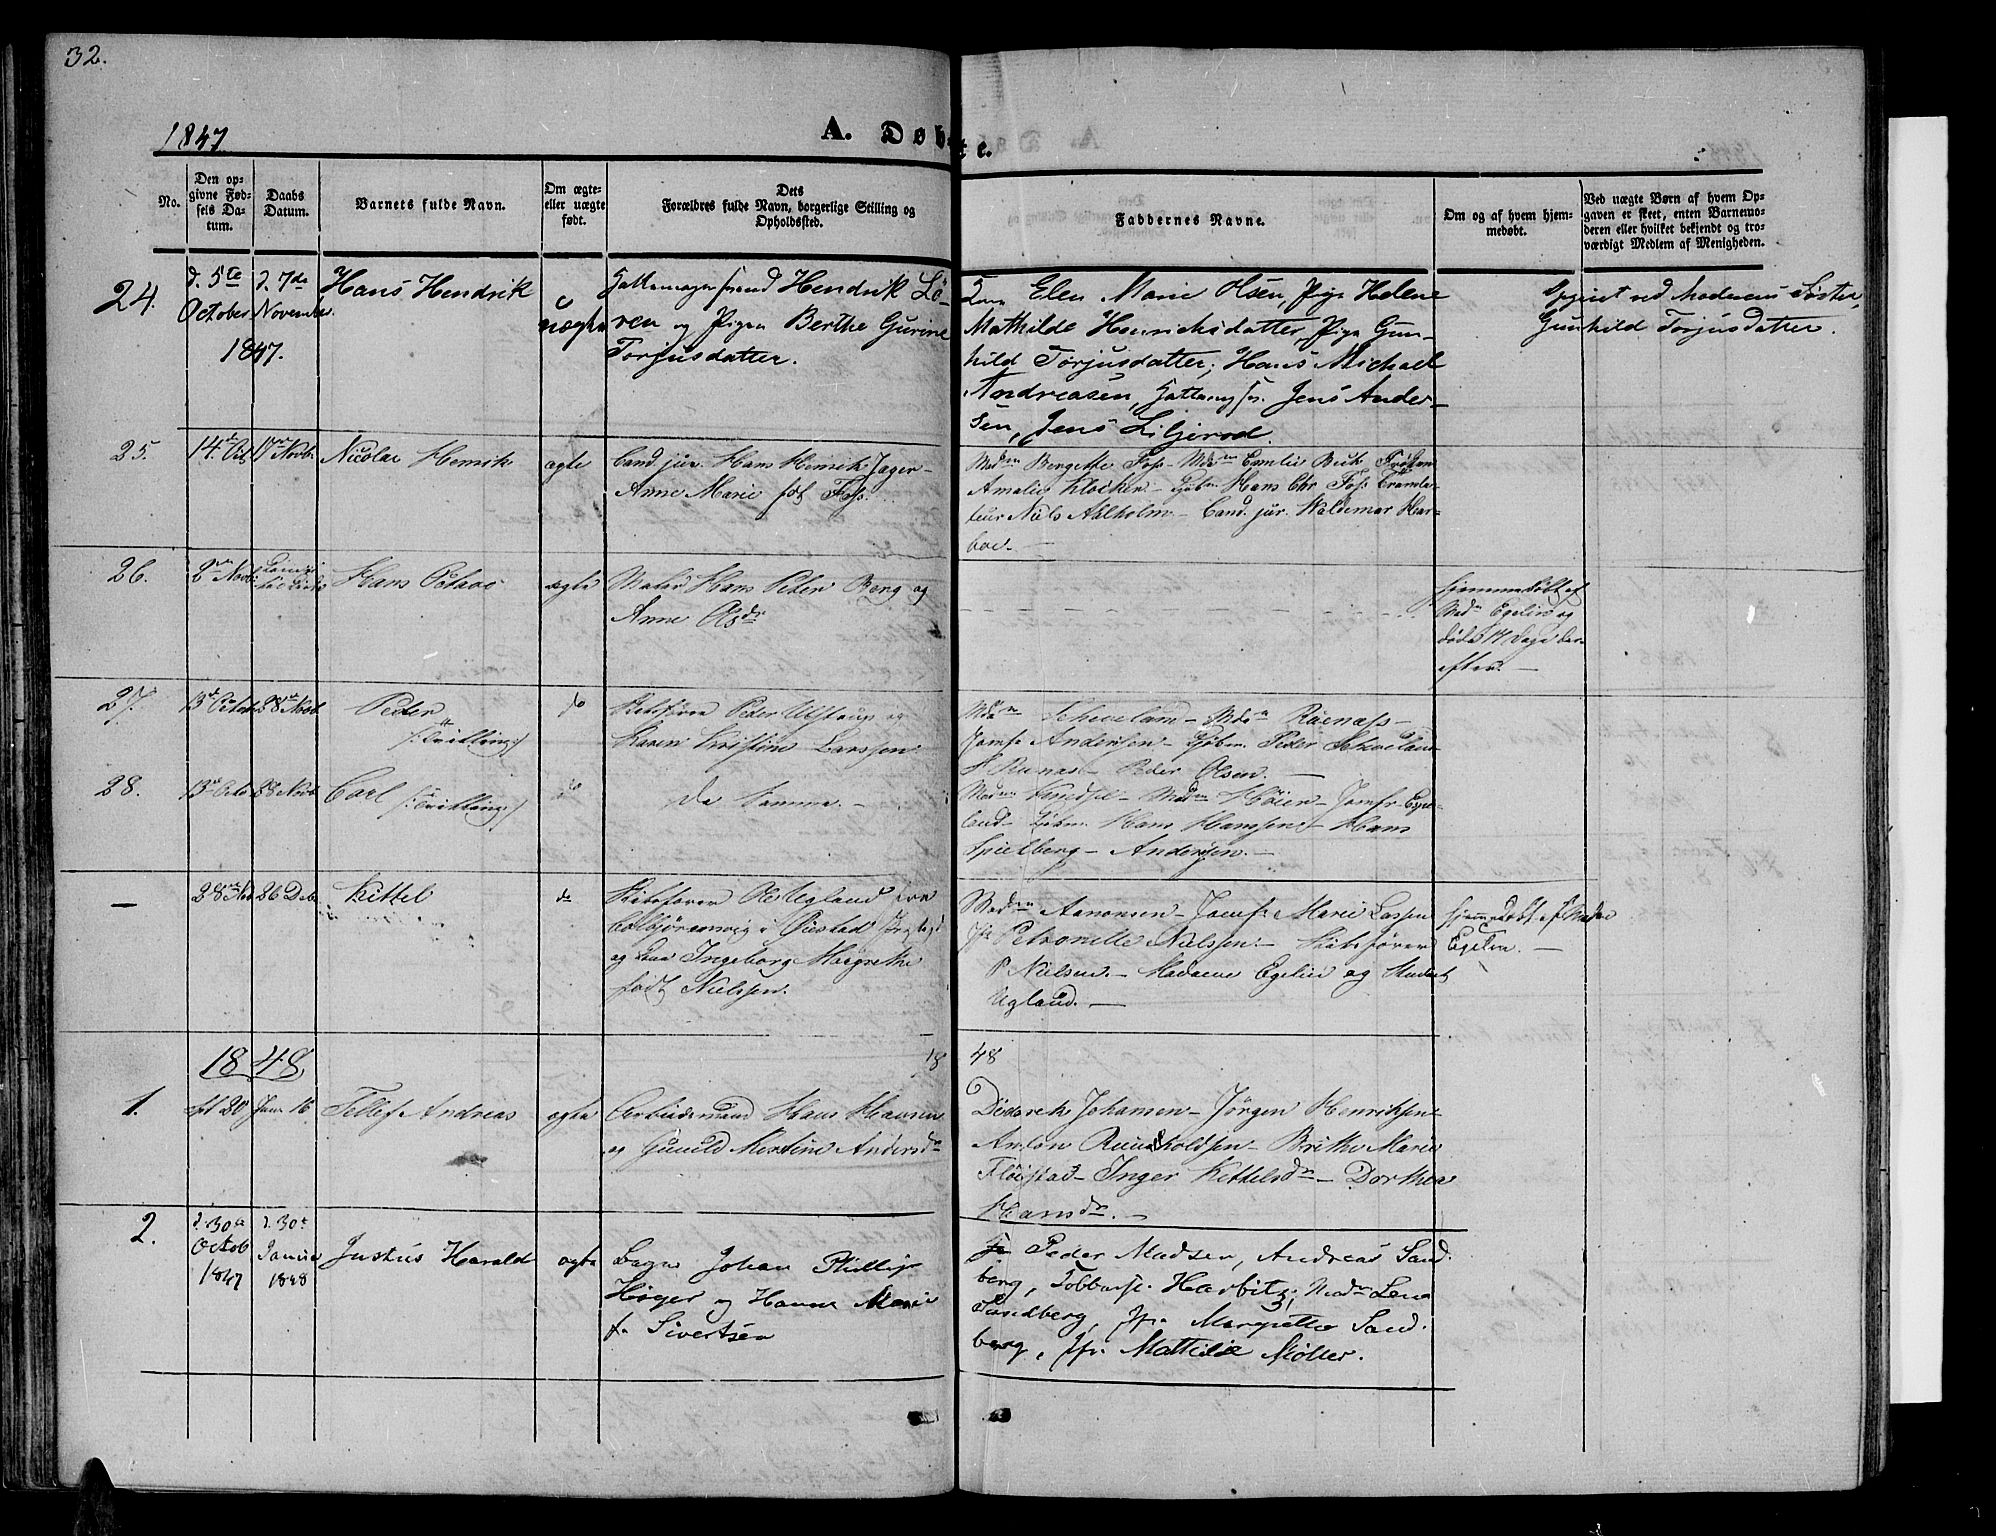 32.
1847
A. Døbte.
No.
Den opgivne Fødsels Datum.
Daabs Datum.
Barnets fulde Navn.
Om ægte- eller uægte født.
Dets Forældres fulde Navn, borgerlige Stilling og Opholdssted.
Faddernes Navne.
Om og af hvem hjemmedøbt.
Ved uægte Børn af hvem Opgaven er skeet, enten Barnemoderen eller hvilket bekjendt og troværdigt Medlem af Menigheden.
24.
d. 5te
October
1847.
d. 7de
November
Hans Hendrik
uægte
Hendrik Lö-
ren og Pigen Berthe Gurine
Torjusdatter.
Elen Marie Olsen, Pige Helene
Mathilde Henrichsdatter, Pige Gun-
hild Torjusdatter, Hans Michael
Andreasen, Jens Ander-
sen, Jens Liljerod.
Opgivet ved Moderens Søster,
Gunhild Torjusdatter.
25.
14de Oct
17 Novb.
Nicolai Henrik
ægte
Cand. jur. Hans Henrik Jager-
Anne Marie født Foss.
Madm Bergette Foss - Mdm Emilie Beck Frøken
Amalie Klocker - Hans Chr Foss
Niels Ahlholm - Cand. jur. Waldemar Har-
boe. -
26.
2 Novb.
Hans Petersen
ægte
Hans Peder Berg og
Anne Olsdr
hjemmedøbt af
Madm Egelin og
døde 17 Dage der-
efter. -
27.
13de Octob
28de Novb
Peder
(: Tvilling :)
do
Skibsfører Peder Ulstrup og
Karen Kristine Larssen
Madm Scheveland - Mdm Raenæss -
Jomfr Andersen - Peder
Peder Olsen. -
28.
13de Octo
28 Novb
Carl (: Tvilling :)
do
de Samme. -
Madm Knudsen - Madm Høier - Jomfr Ege-
land - Hans Hanssen - Hans
Spielberg - Andersen. -
-
28de Nov
26 Deb
Kittel
do
Skibsfører Ole Ugland fra
Colbjørnsvig i Øiestad
og Ingeborg Margrethe
født Nielssen.
Madm Aanonsen - Jomfr Marie Lassen
Jfr Petronelle Nielssen - Skibsfører
P Nielsen. - Madame Egelin og Student
Ugland. -
hjemmedøbt af Madm
Egelin. -
1848
1848
1.
Spt 20
Janr 16
Tellef Andreas
ægte
Arbeidsmand Hans Hansen
og Gunild Kirstine Andersdr
Diderek Johansen - Jørgen Henriksen -
Anton Reinholdsen - Brithe Marie
Fløistad - Inger Kittelsdr - Dorthea
Hansdr. -
2.
d. 30te
Octob
1847
d. 30te
Janua
1848
Justus Harald
ægte
Johan Phillip
Høyer og Hanne Marie
f. Sivertsen
Peder Madsen, Andreas Sand-
berg, Harbitz, Madm Lena
Sandberg, Jfr. Margrethe Sand-
berg, Jfr. Mathilde Møller.